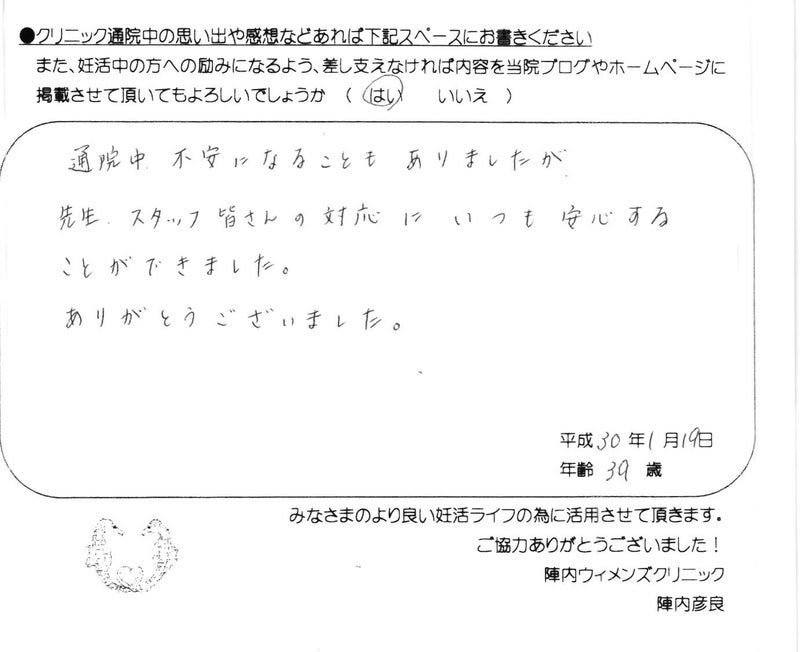 ●クリニック通院中の思い出や感想などあれば下記スペースにお書きください
また、妊活中の方への励みになるよう、差し支えなければ内容を当院ブログやホームページに
掲載させて頂いてもよろしいでしょうか （ はい いいえ ）
通院中 不安になることも ありましたが
先生、スタッフ皆さんの対応に いつも 安心する
ことができました。
ありがとうございました。
平成30年1月19日
年齢 39 歳
みなさまのより良い妊活ライフの為に活用させて頂きます。
ご協力ありがとうございました！
陣内ウィメンズクリニック
陣内彦良